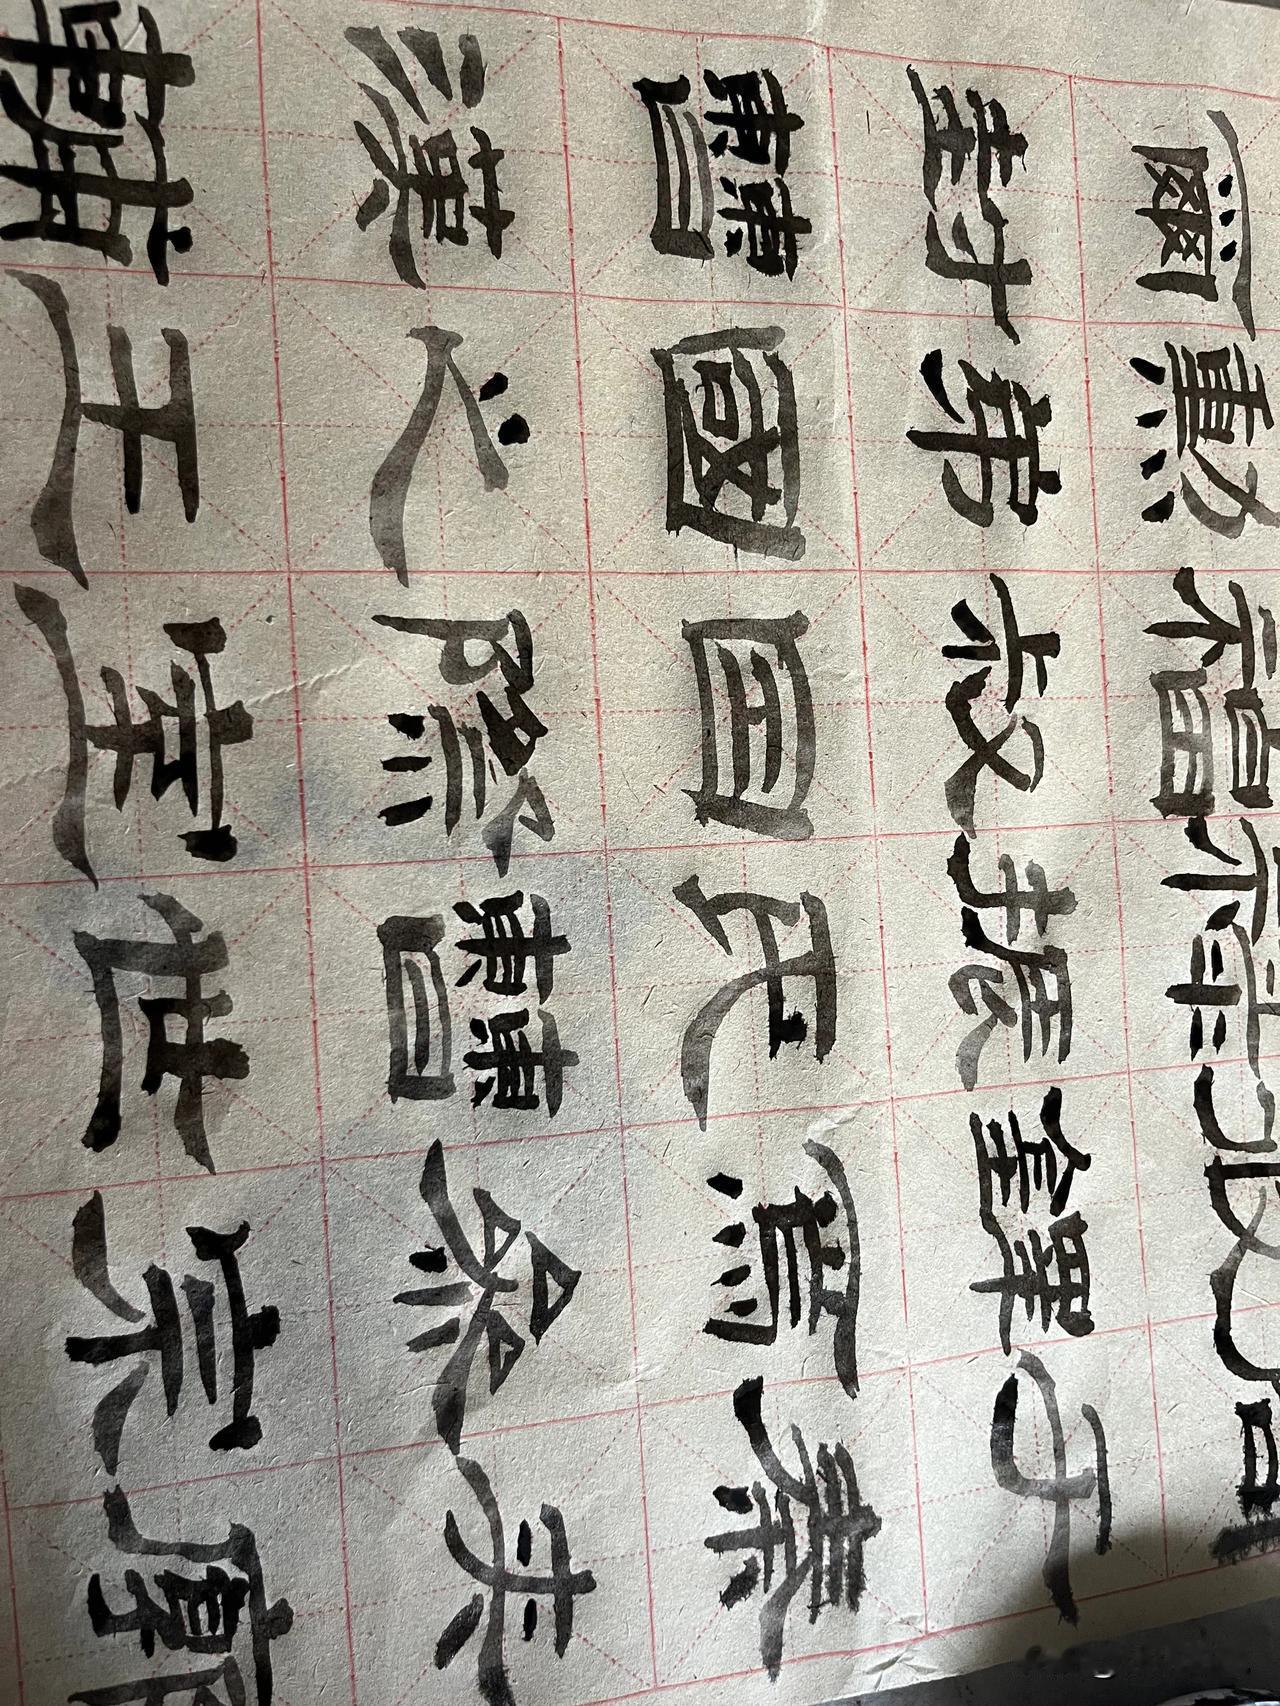 爾勳福祿攸
封弟叔振鐸于
曹國因氏焉秦
漢之際曹參夾
輔王室世宗廓